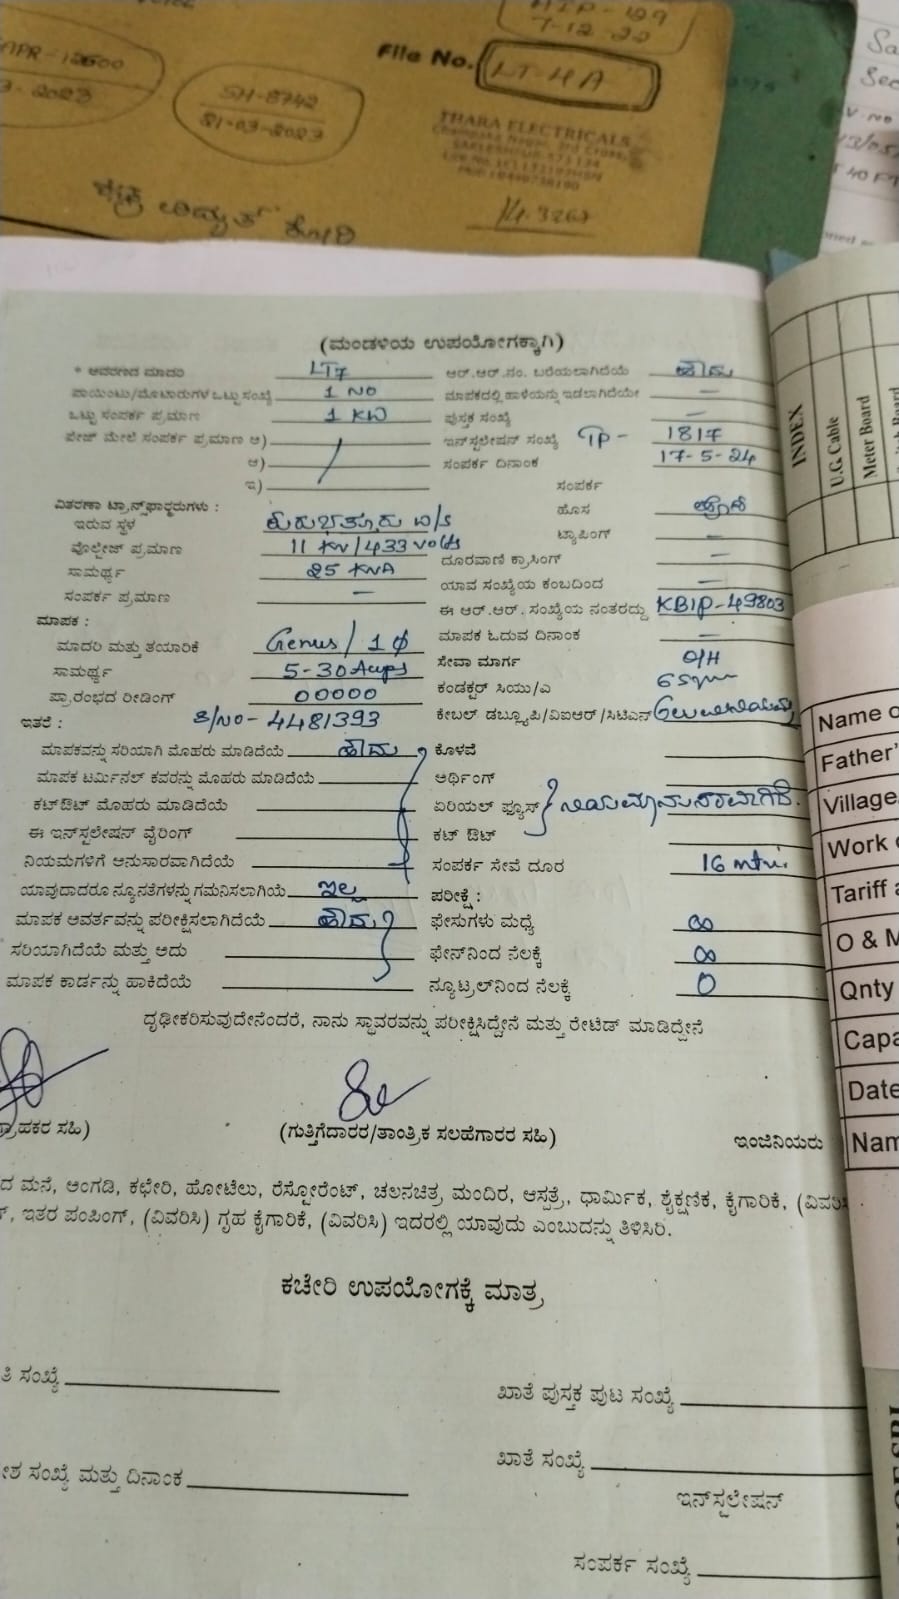 7-12-22
3-2023
SH-8742
21-03-2023
File No. LT-4A
THARA ELECTRICALS
INDEX
U.G. Cable
Meter Board
(ಮಂಡಳಿಯ ಉಪಯೋಗಕ್ಕಾಗಿ)
* ಆವರಣದ ಮಾದರಿ LT7 ಆರ್.ಆರ್.ನಂ. ಬರೆಯಲಾಗಿದೆಯೆ ಹೌದು
ಪಾಯಿಂಟು/ಮೋಟಾರುಗಳ ಒಟ್ಟು ಸಂಖ್ಯೆ 1 NO ಮಾಪಕದಲ್ಲಿ ಹಾಳೆಯನ್ನು ಇಡಲಾಗಿದೆಯೇ —
ಒಟ್ಟು ಸಂಪರ್ಕ ಪ್ರಮಾಣ 1 KW ಪುಸ್ತಕ ಸಂಖ್ಯೆ —
ಪೇಜ್ ಮೇಲೆ ಸಂಪರ್ಕ ಪ್ರಮಾಣ ಅ) ಇನ್‌ಸ್ಟಲೇಷನ್ ಸಂಖ್ಯೆ TP- 1817
ಆ) ಸಂಪರ್ಕ ದಿನಾಂಕ 17-5-24
ಇ) ಸಂಪರ್ಕ
ವಿತರಣಾ ಟ್ರಾನ್ಸ್‌ಫಾರ್ಮರುಗಳು : ಹೊಸ
ಇರುವ ಸ್ಥಳ ಟ್ಯಾಪಿಂಗ್ —
ವೋಲ್ಟೇಜ್ ಪ್ರಮಾಣ 11 KV/433 volts ದೂರವಾಣಿ ಕ್ರಾಸಿಂಗ್ —
ಸಾಮರ್ಥ್ಯ 25 KVA ಯಾವ ಸಂಖ್ಯೆಯ ಕಂಬದಿಂದ —
ಸಂಪರ್ಕ ಪ್ರಮಾಣ — ಈ ಆರ್.ಆರ್. ಸಂಖ್ಯೆಯ ನಂತರದ್ದು KBIP-49803
ಮಾಪಕ : ಮಾಪಕ ಓದುವ ದಿನಾಂಕ —
ಮಾದರಿ ಮತ್ತು ತಯಾರಿಕೆ Genus/1φ ಸೇವಾ ಮಾರ್ಗ O/H
ಸಾಮರ್ಥ್ಯ 5-30 Amps ಕಂಡಕ್ಟರ್ ಸಿಯು/ಎ
ಪ್ರಾರಂಭದ ರೀಡಿಂಗ್ 00000 ಕೇಬಲ್ ಡಬ್ಲ್ಯೂಪಿ/ವಿಐಆರ್/ಸಿಟಿಎಸ್
ಇತರೆ : S/NO-4481393
ಮಾಪಕವನ್ನು ಸರಿಯಾಗಿ ಮೊಹರು ಮಾಡಿದೆಯೆ ಹೌದು ಕೊಳವೆ
ಮಾಪಕ ಟರ್ಮಿನಲ್ ಕವರನ್ನು ಮೊಹರು ಮಾಡಿದೆಯೆ ಅರ್ಥಿಂಗ್
ಕಟ್‌ಔಟ್ ಮೊಹರು ಮಾಡಿದೆಯೆ ಏರಿಯಲ್ ಫ್ಯೂಸ್ ನಿಯಮಾನುಸಾರವಾಗಿದೆ.
ಈ ಇನ್‌ಸ್ಟಲೇಷನ್ ವೈರಿಂಗ್ ಕಟ್ ಔಟ್
ನಿಯಮಗಳಿಗೆ ಅನುಸಾರವಾಗಿದೆಯೆ ಸಂಪರ್ಕ ಸೇವೆ ದೂರ 16
ಯಾವುದಾದರೂ ನ್ಯೂನತೆಗಳನ್ನು ಗಮನಿಸಲಾಗಿಯೆ ಇಲ್ಲ ಪರೀಕ್ಷೆ :
ಮಾಪಕ ಆವರ್ತವನ್ನು ಪರೀಕ್ಷಿಸಲಾಗಿದೆಯೆ ಹೌದು ಫೇಸುಗಳು ಮಧ್ಯೆ ∞
ಸರಿಯಾಗಿದೆಯೆ ಮತ್ತು ಅದು ಫೇಸ್‌ನಿಂದ ನೆಲಕ್ಕೆ ∞
ಮಾಪಕ ಕಾರ್ಡನ್ನು ಹಾಕಿದೆಯೆ ನ್ಯೂಟ್ರಲ್‌ನಿಂದ ನೆಲಕ್ಕೆ 0
ದೃಢೀಕರಿಸುವುದೇನೆಂದರೆ, ನಾನು ಸ್ಥಾವರವನ್ನು ಪರೀಕ್ಷಿಸಿದ್ದೇನೆ ಮತ್ತು ರೇಟೆಡ್ ಮಾಡಿದ್ದೇನೆ
ಗ್ರಾಹಕರ ಸಹಿ) (ಗುತ್ತಿಗೆದಾರರ/ತಾಂತ್ರಿಕ ಸಲಹೆಗಾರರ ಸಹಿ) ಇಂಜಿನಿಯರು
ದ ಮನೆ, ಅಂಗಡಿ, ಕಛೇರಿ, ಹೋಟೆಲು, ರೆಸ್ಟೋರೆಂಟ್, ಚಲನಚಿತ್ರ ಮಂದಿರ, ಆಸ್ಪತ್ರೆ, ಧಾರ್ಮಿಕ, ಶೈಕ್ಷಣಿಕ, ಕೈಗಾರಿಕೆ, (ವಿವರಿಸಿ
ಇತರ ಪಂಪಿಂಗ್, (ವಿವರಿಸಿ) ಗೃಹ ಕೈಗಾರಿಕೆ, (ವಿವರಿಸಿ) ಇದರಲ್ಲಿ ಯಾವುದು ಎಂಬುದನ್ನು ತಿಳಿಸಿರಿ.
ಕಚೇರಿ ಉಪಯೋಗಕ್ಕೆ ಮಾತ್ರ
ತಿ ಸಂಖ್ಯೆ
ಖಾತೆ ಪುಸ್ತಕ ಪುಟ ಸಂಖ್ಯೆ
ಶ ಸಂಖ್ಯೆ ಮತ್ತು ದಿನಾಂಕ
ಖಾತೆ ಸಂಖ್ಯೆ
ಇನ್‌ಸ್ಟಲೇಷನ್
ಸಂಪರ್ಕ ಸಂಖ್ಯೆ
Name o
Father'
Village
Work o
Tariff a
O & M
Qnty
Capa
Date
Nam